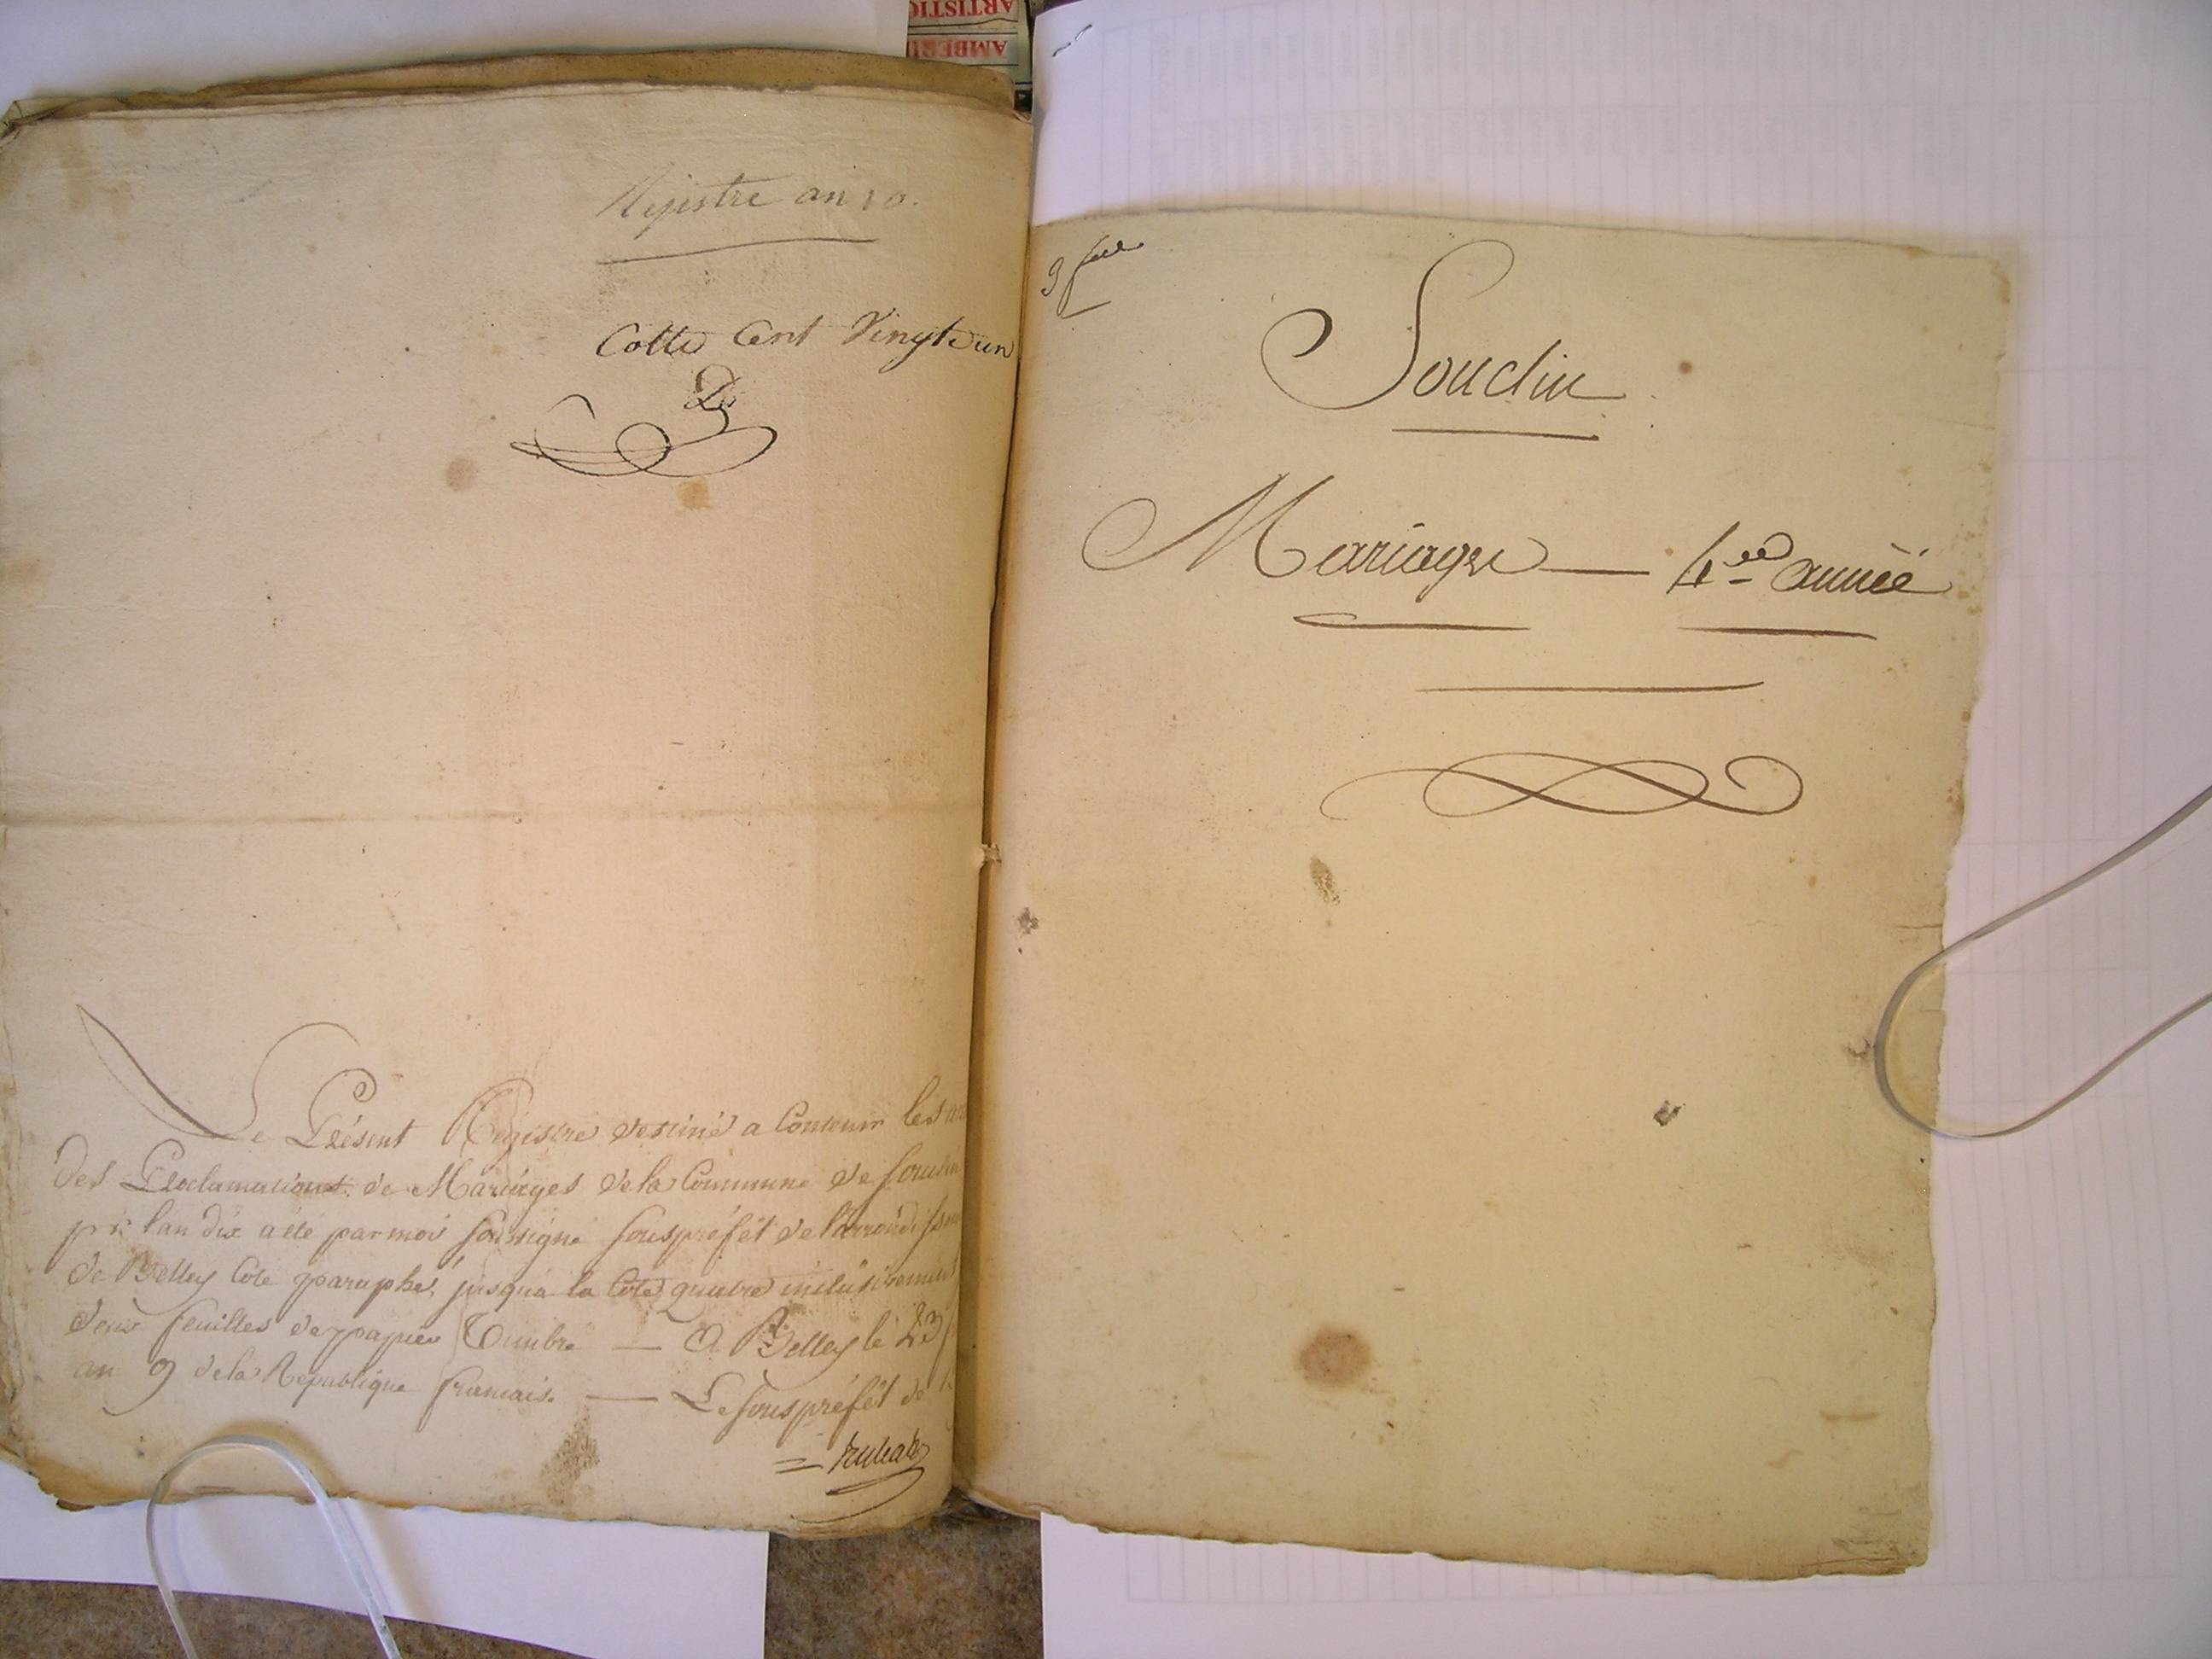 ARTISTIC
AMBERI
Registre an 10.
Cotte Cent Vingt un
Le Présent Régistre destiné a Contenir les
des Proclamations de Mariages de la Commune de Souclin
pr. l'an dix a été par moi soussigné souspréfét de l'arrondissem
de Belley Coté paraphé, jusqu'a la Cote quatre inclusivement
deux feuilles de papier Timbré — A Belley le 23
an 9 de la République francaise — Le souspréfét de
3 fllle
Souclin
Mariage — 4.ee année